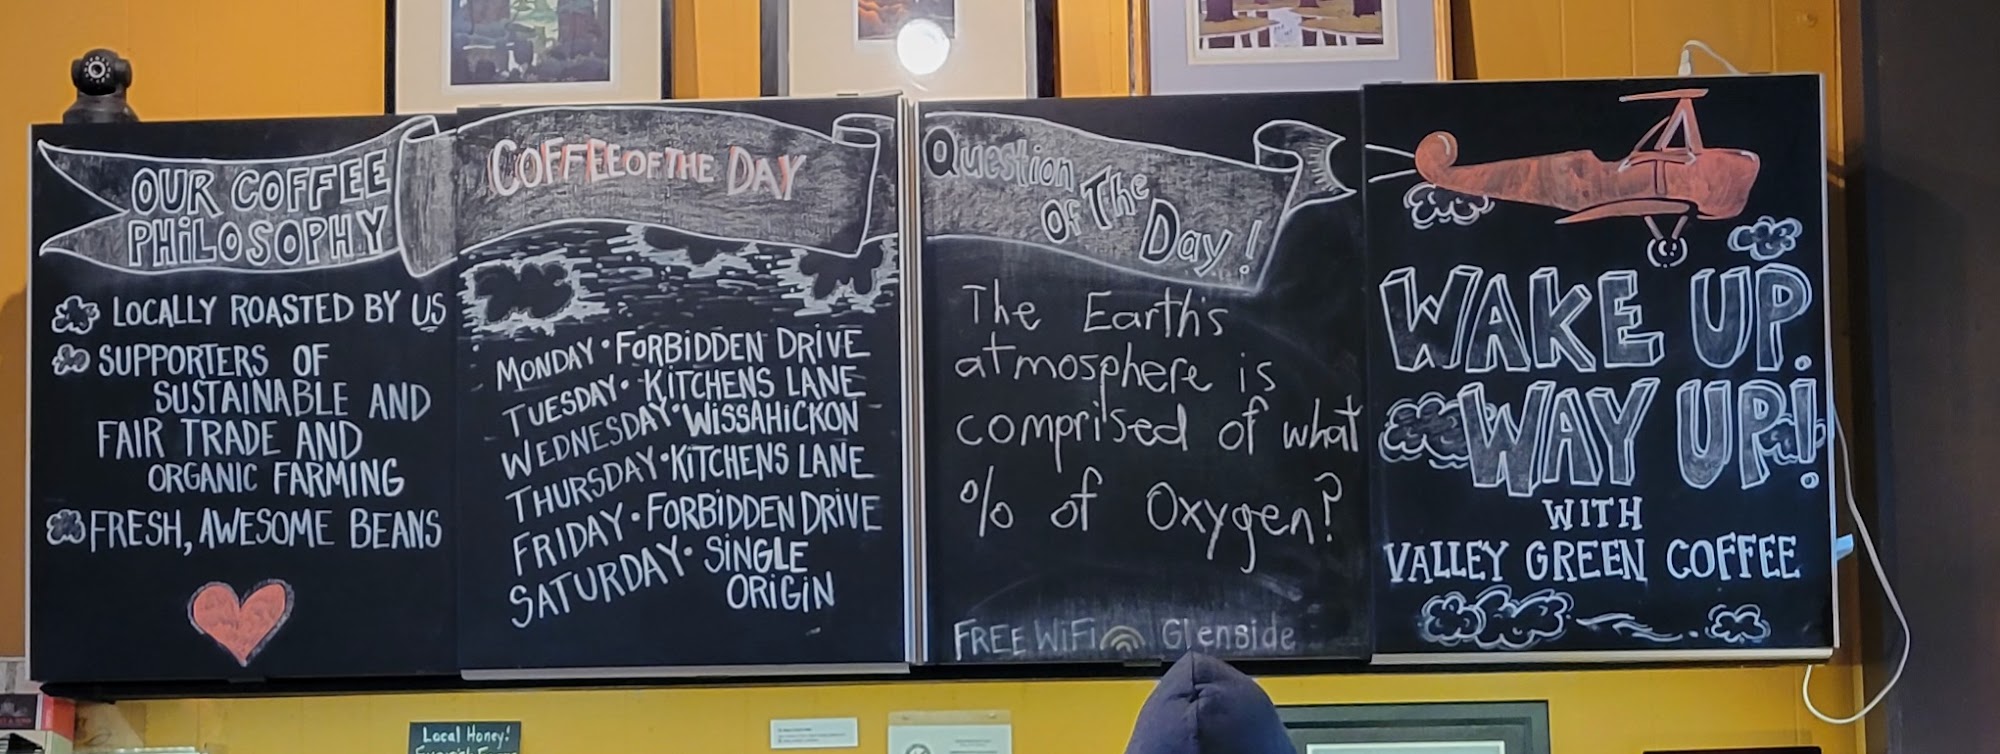 OUR COFFEE
PHiLOSOPHY
LOCALLY ROASTED BY US
SUPPORTERS OF
SUSTAINABLE AND
FAIR TRADE AND
ORGANIC FARMING
FRESH, AWESOME BEANS
COFFEE OF THE DAY
MONDAY • FORBIDDEN DRIVE
TUESDAY • KITCHENS LANE
WEDNESDAY • WISSAHICKON
THURSDAY • KITCHENS LANE
FRIDAY • FORBIDDEN DRIVE
SATURDAY • SINGLE
ORIGIN
Question
Of The
Day!
The Earth's
atmosphere is
comprised of what
% of Oxygen?
FREE WiFi Glenside
WAKE UP.
WAY UP!
WITH
VALLEY GREEN COFFEE
Local Honey!